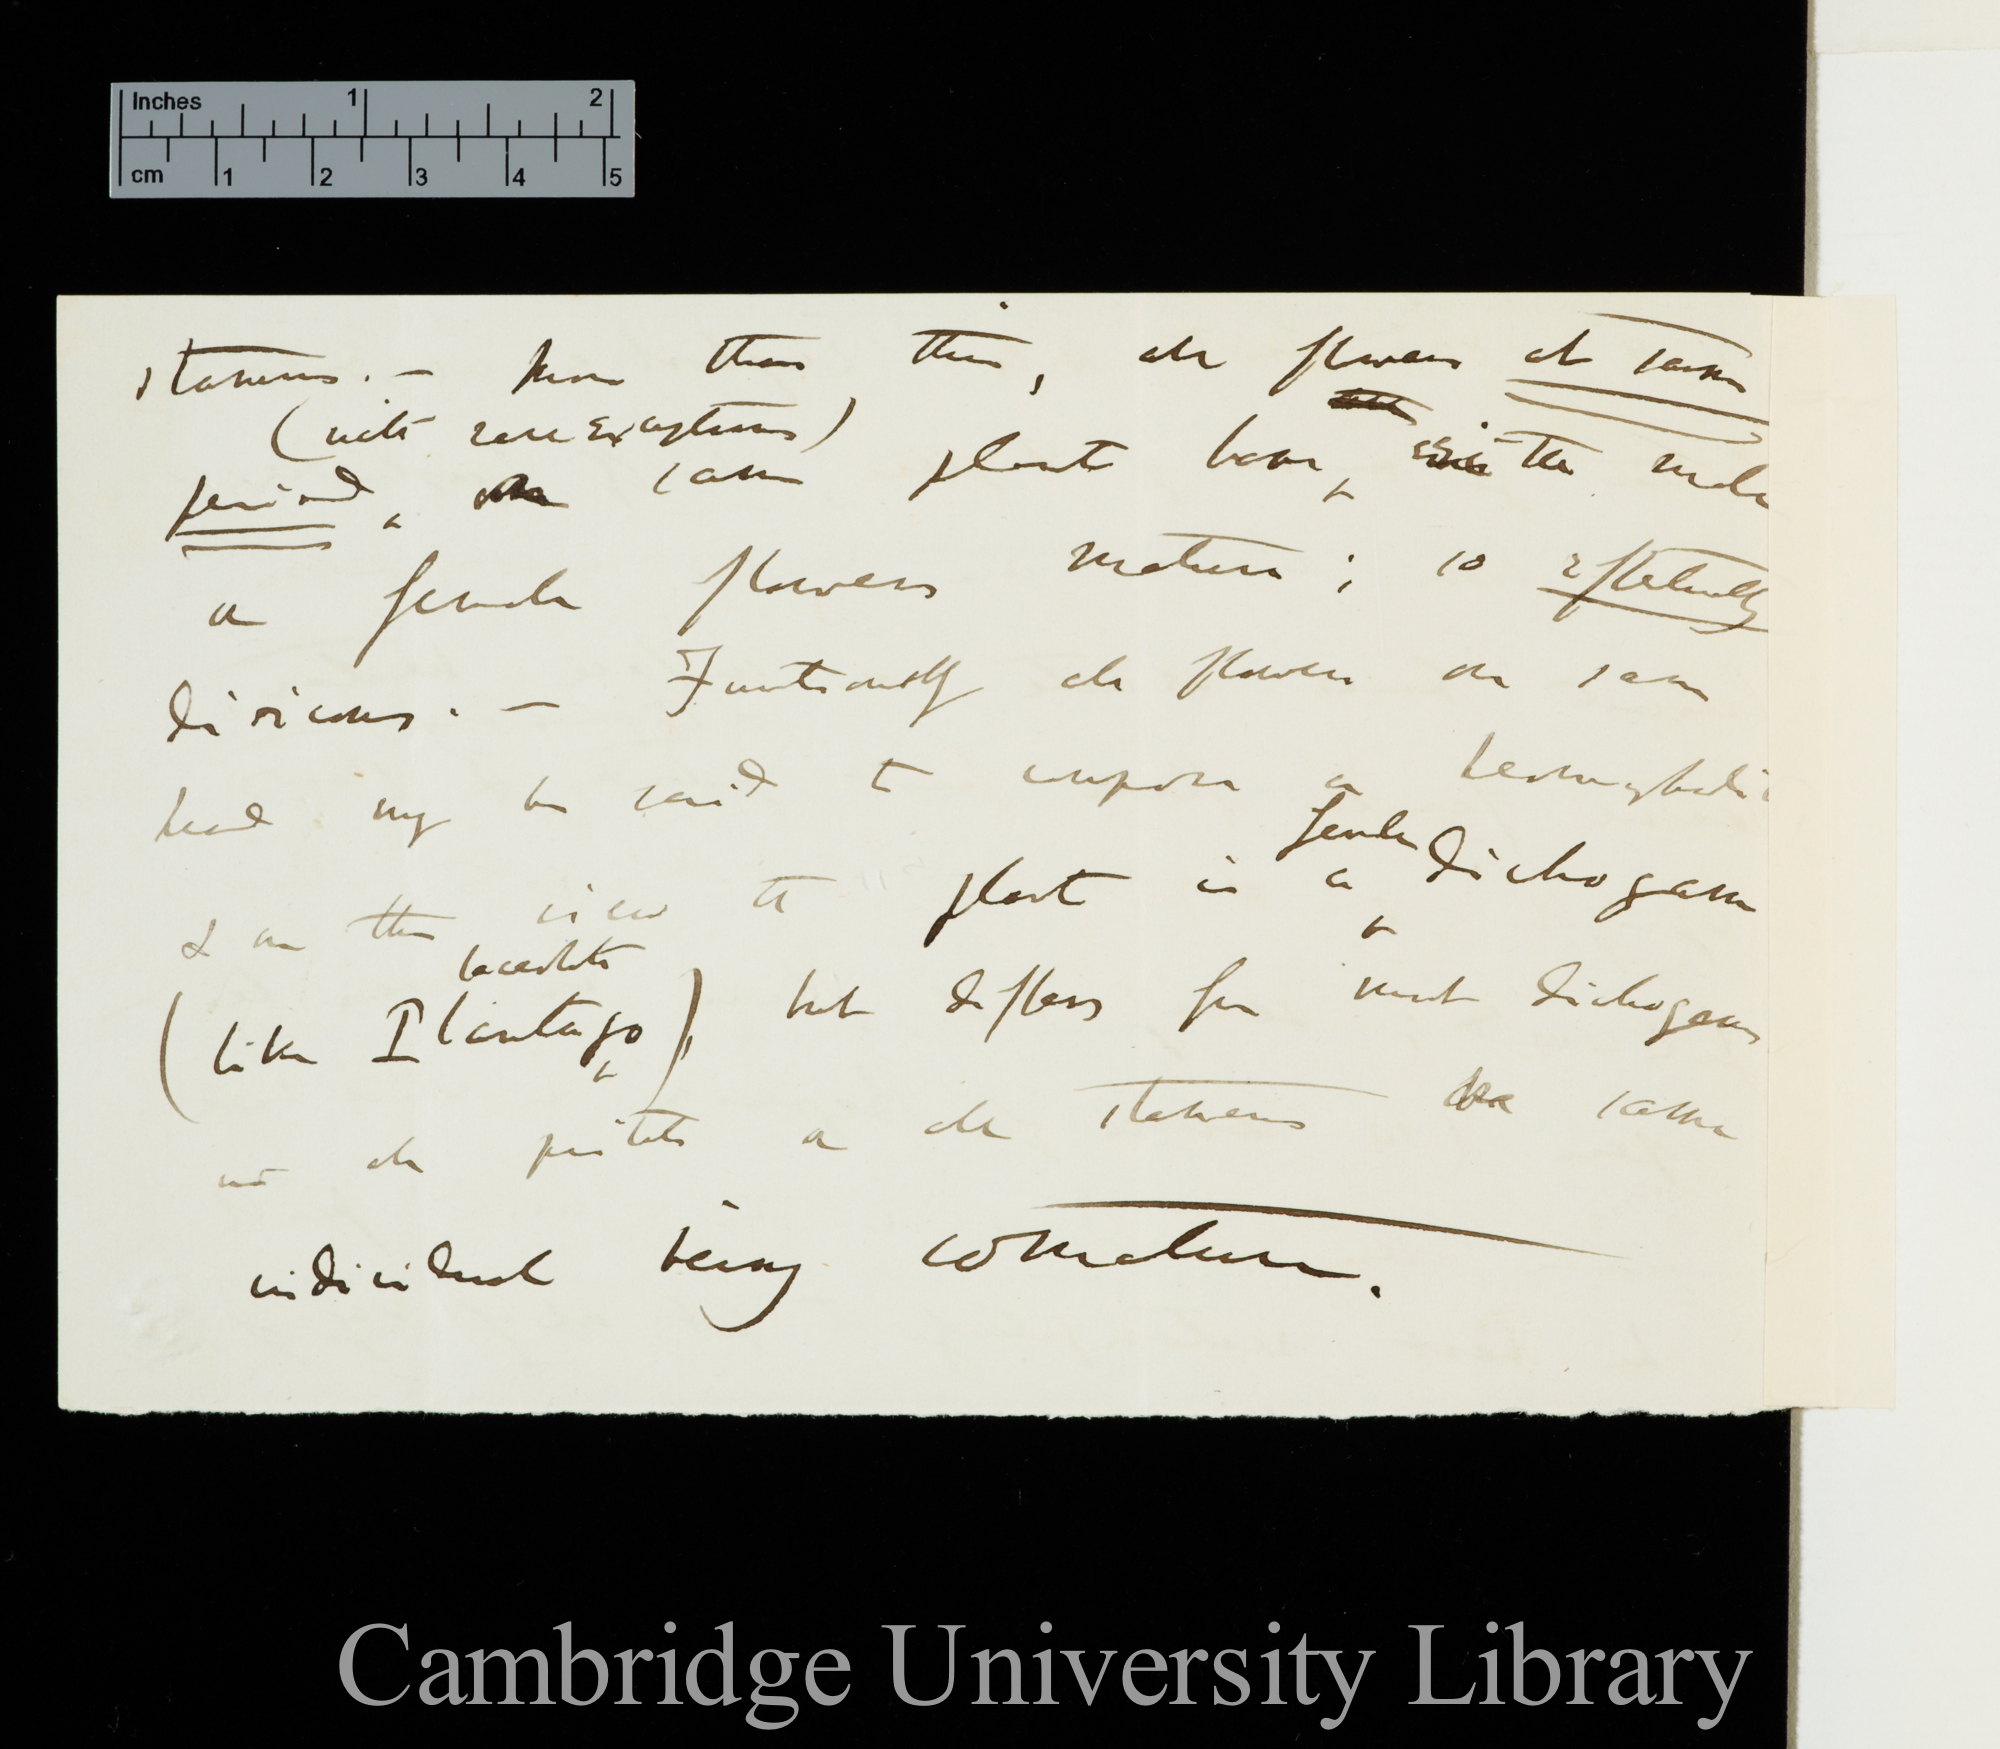 Inches 1 2
cm 1 2 3 4 5
stamens. — More than this, all flowers at same
(with rare exceptions)
period, on same plant bear, either male
or female flowers mature; so
dioicous. — Functionally all flowers on same
head may be said to compose a hermaphrodite
& on this view the plant is a female dichogam
lanceolata
(like Plantago), but differs from most dichogams
in all pistils or all stamens on same
individual being comature.
Cambridge University Library